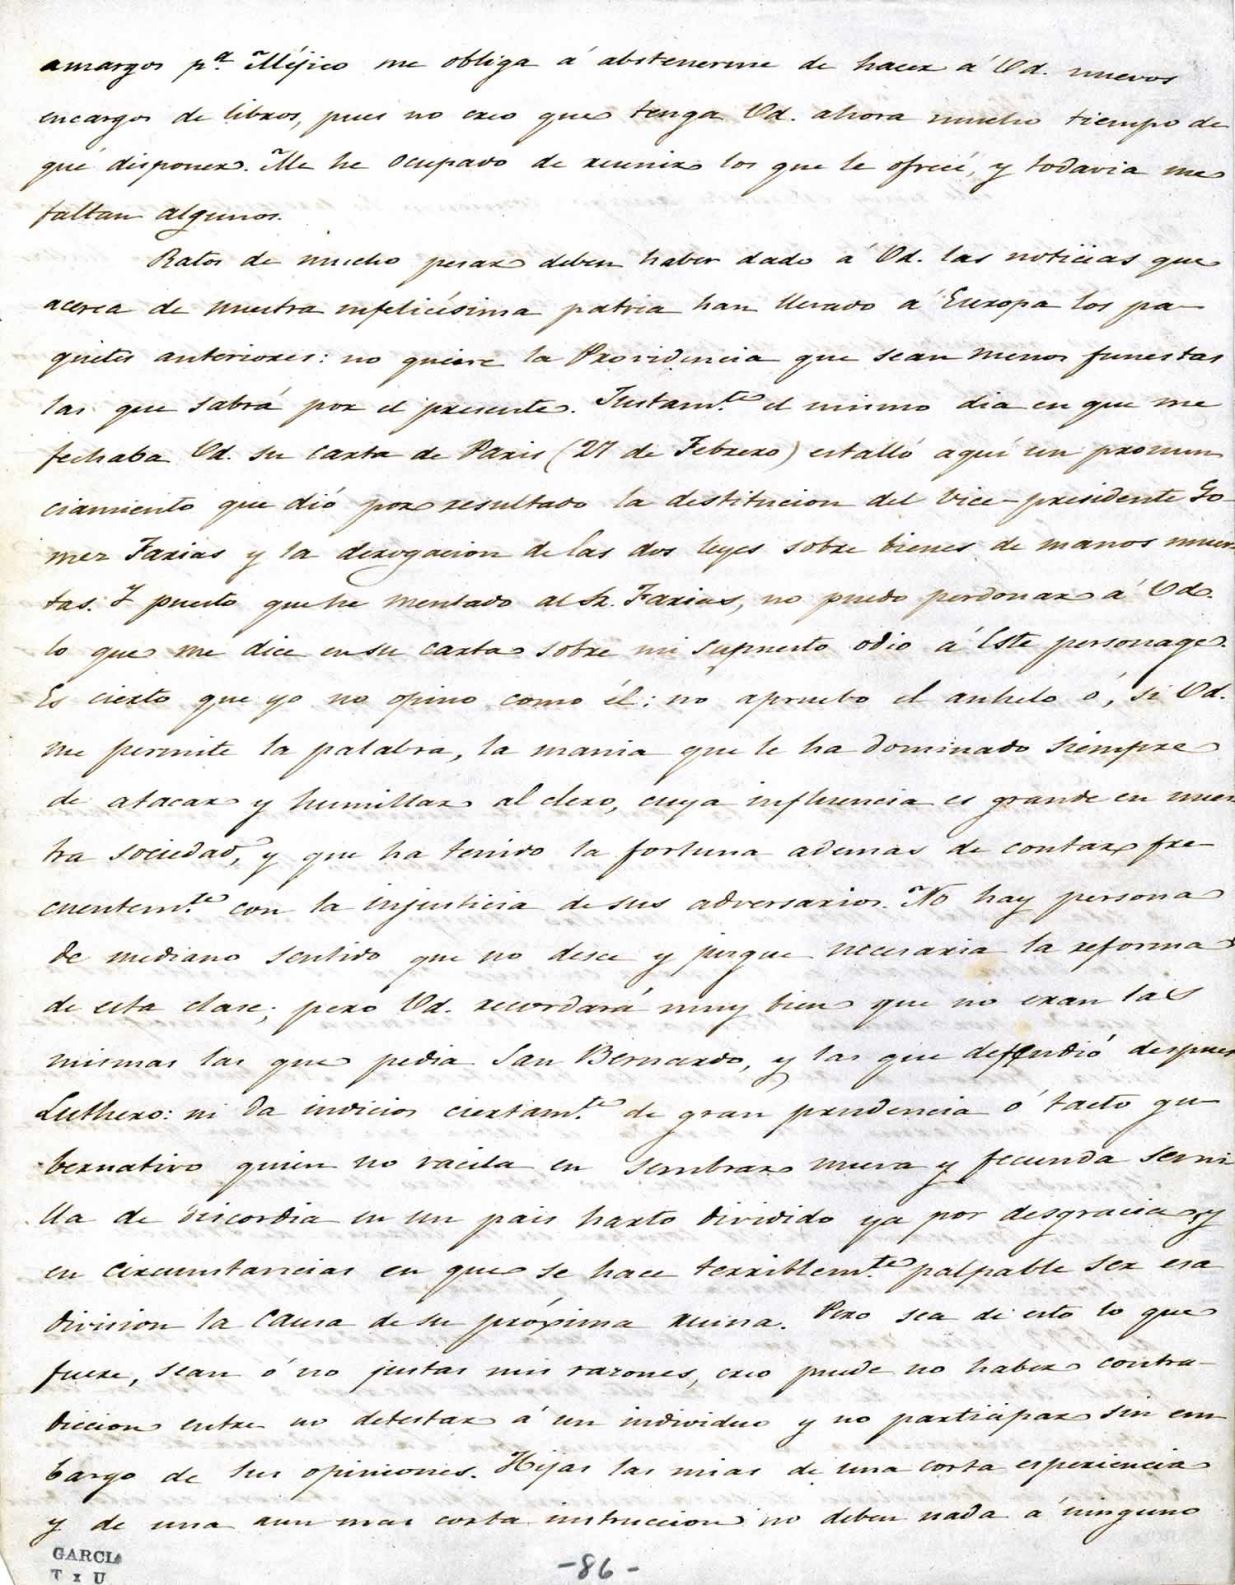 amargos p.ª Méjico me obliga á abstenerme de hacer á Vd. nuevos
encargos de libros, pues no creo que tenga Vd. ahora mucho tiempo de
qué disponer. Me he ocupado de reunir los que le ofrecí, y todavia me
faltan algunos.
Ratos de mucho pesar deben haber dado á Vd. las noticias que
acerca de nuestra infelicísima patria han llevado á Europa los pa-
quetes anteriores: no quiere la Providencia que sean menos funestas
las que sabrá por el presente. Justam.te el mismo dia en que me
fechaba Vd. su carta de Paris (27 de Febrero) estalló aquí un pronun
ciamiento que dió por resultado la destitucion del Vice-presidente Go-
mez Farias y la derogacion de las dos leyes sobre bienes de manos muer-
tas. Y puesto que he mentado al Sr. Farias, no puedo perdonar á Vd.
lo que me dice en su carta sobre mi supuesto odio á este personage.
Es cierto que yo no opino como él: no apruebo el anhelo ó, si Vd.
me permite la palabra, la mania que le ha dominado siempre
de atacar y humillar al clero, cuya influencia es grande en nues-
tra sociedad, y que ha tenido la fortuna ademas de contar fre-
cuentem.te con la injusticia de sus adversarios. No hay persona
de mediano sentido que no desee y juzgue necesaria la reforma
de esta clase; pero Vd. recordará muy bien que no eran las
mismas las que pedia San Bernardo, y las que defendió despues
Luthero: ni da indicios ciertam.te de gran prudencia ó tacto gu-
bernativo quien no vacila en sembrar nueva y fecunda semi
lla de discordia en un pais harto dividido ya por desgracia, y
en circunstancias en que se hace terriblem.te palpable ser esa
division la causa de su próxima ruina. Pero sea de esto lo que
fuere, sean ó no justas mis razones, creo puede no haber contra-
diccion entre no detestar á un individuo y no participar sin em
bargo de sus opiniones. Hijas las mias de una corta esperiencia
y de una aun mas corta instruccion no deben nada á ninguno
GARCIA
T x U
-86-